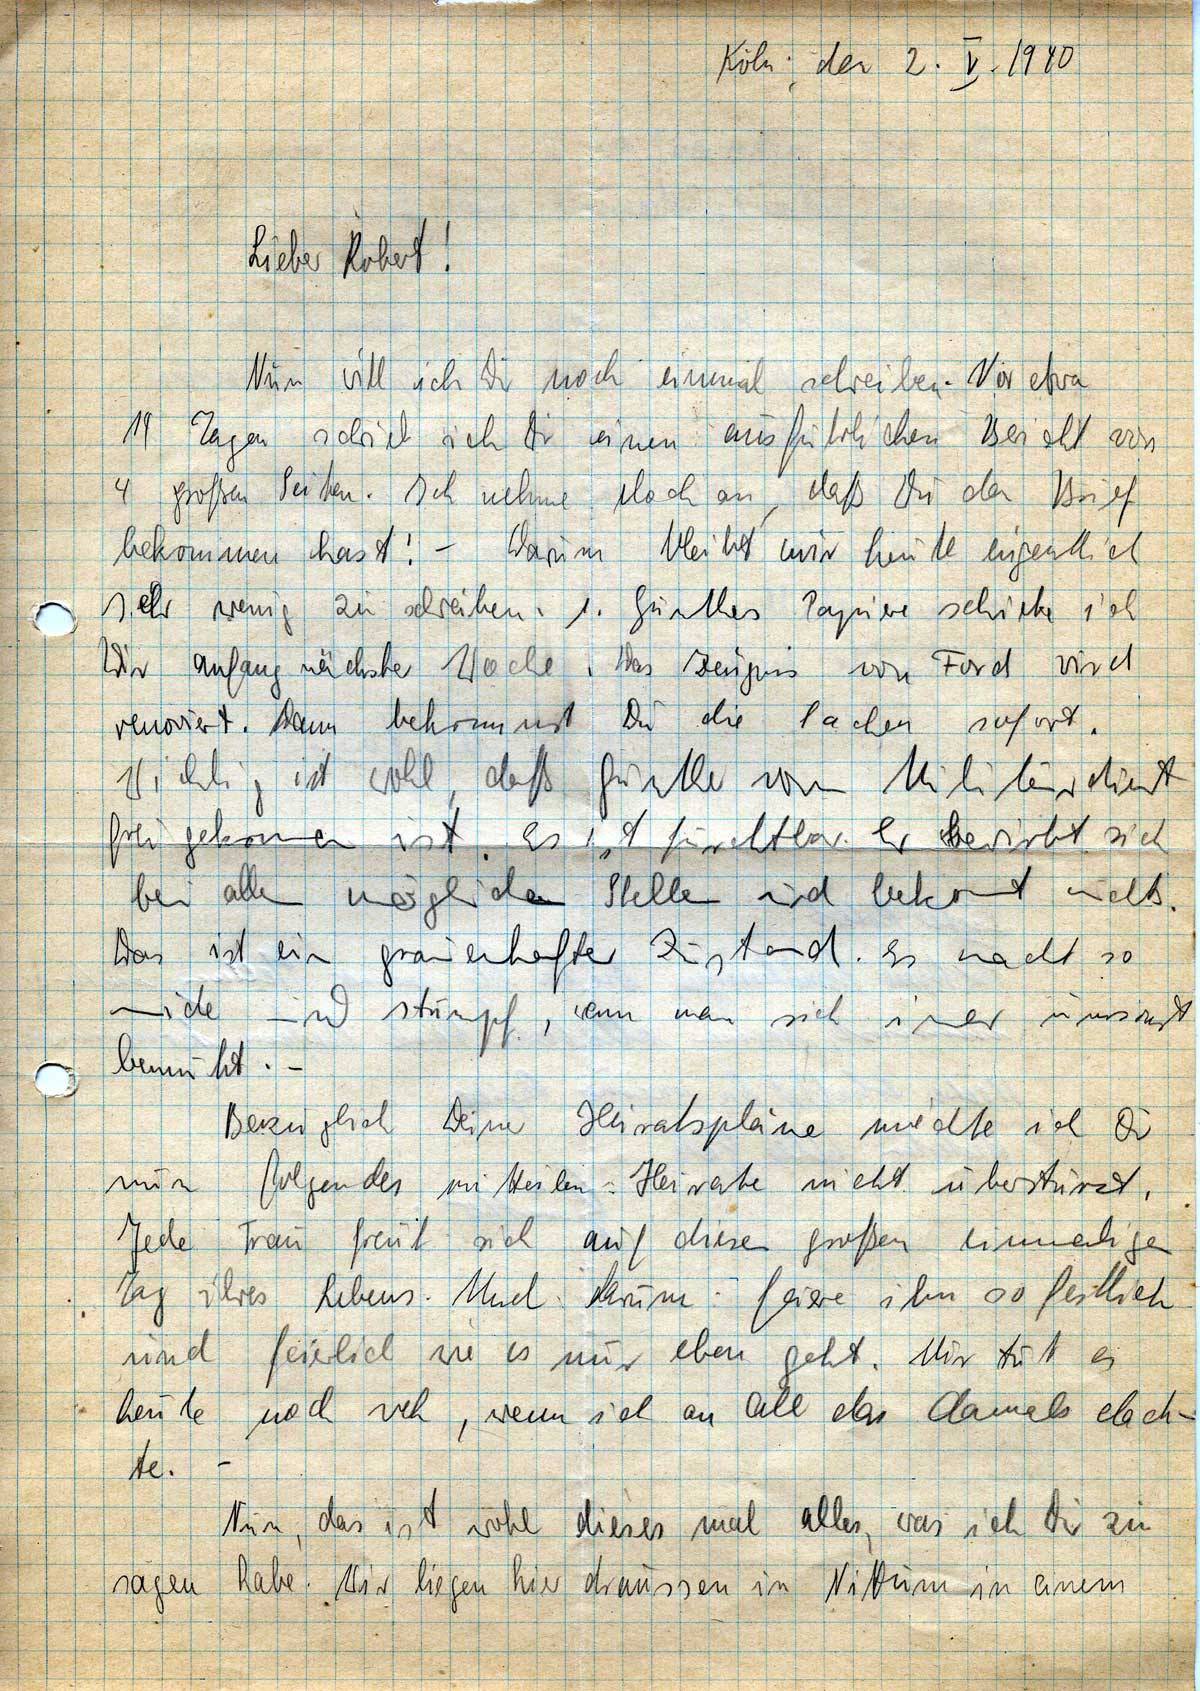 Köln, den 2. V. 1940
Lieber Robert!
Nun will ich Dir noch einmal schreiben. Vor etwa
14 Tagen schrieb ich Dir einen ausführlichen Bericht von
4 großen Seiten. Ich nehme doch an, daß Du den Brief
bekommen hast! – Darum bleibt mir heute eigentlich
sehr wenig zu schreiben. 1. Günthers Papiere schicke ich
Dir anfang nächster Woche. Das Zeugnis von Ford wird
renoviert. Dann bekommst Du die Sachen sofort.
Wichtig ist wohl, daß Günther vom Militärdienst
frei gekommen ist. Es ist furchtbar. Er bewirbt sich
bei allen möglichen Stellen und bekommt nichts.
Das ist ein grauenhafter Zustand. Es macht so
müde und stumpf, wenn man sich immer umsonst
bemüht. –
Bezüglich Deiner Heiratspläne möchte ich Dir
nun folgendes mitteilen: Heirate nicht überstürzt.
Jede Frau freut sich auf diesen großen einmaligen
Tag ihres Lebens. Und darum: feiere ihn so festlich
und feierlich wie es nur eben geht. Mir tut es
heute noch weh, wenn ich an all das damals dach-
te. –
Nun, das ist wohl dieses mal alles, was ich Dir zu
sagen habe. Wir liegen hier draussen in Nittum in einem